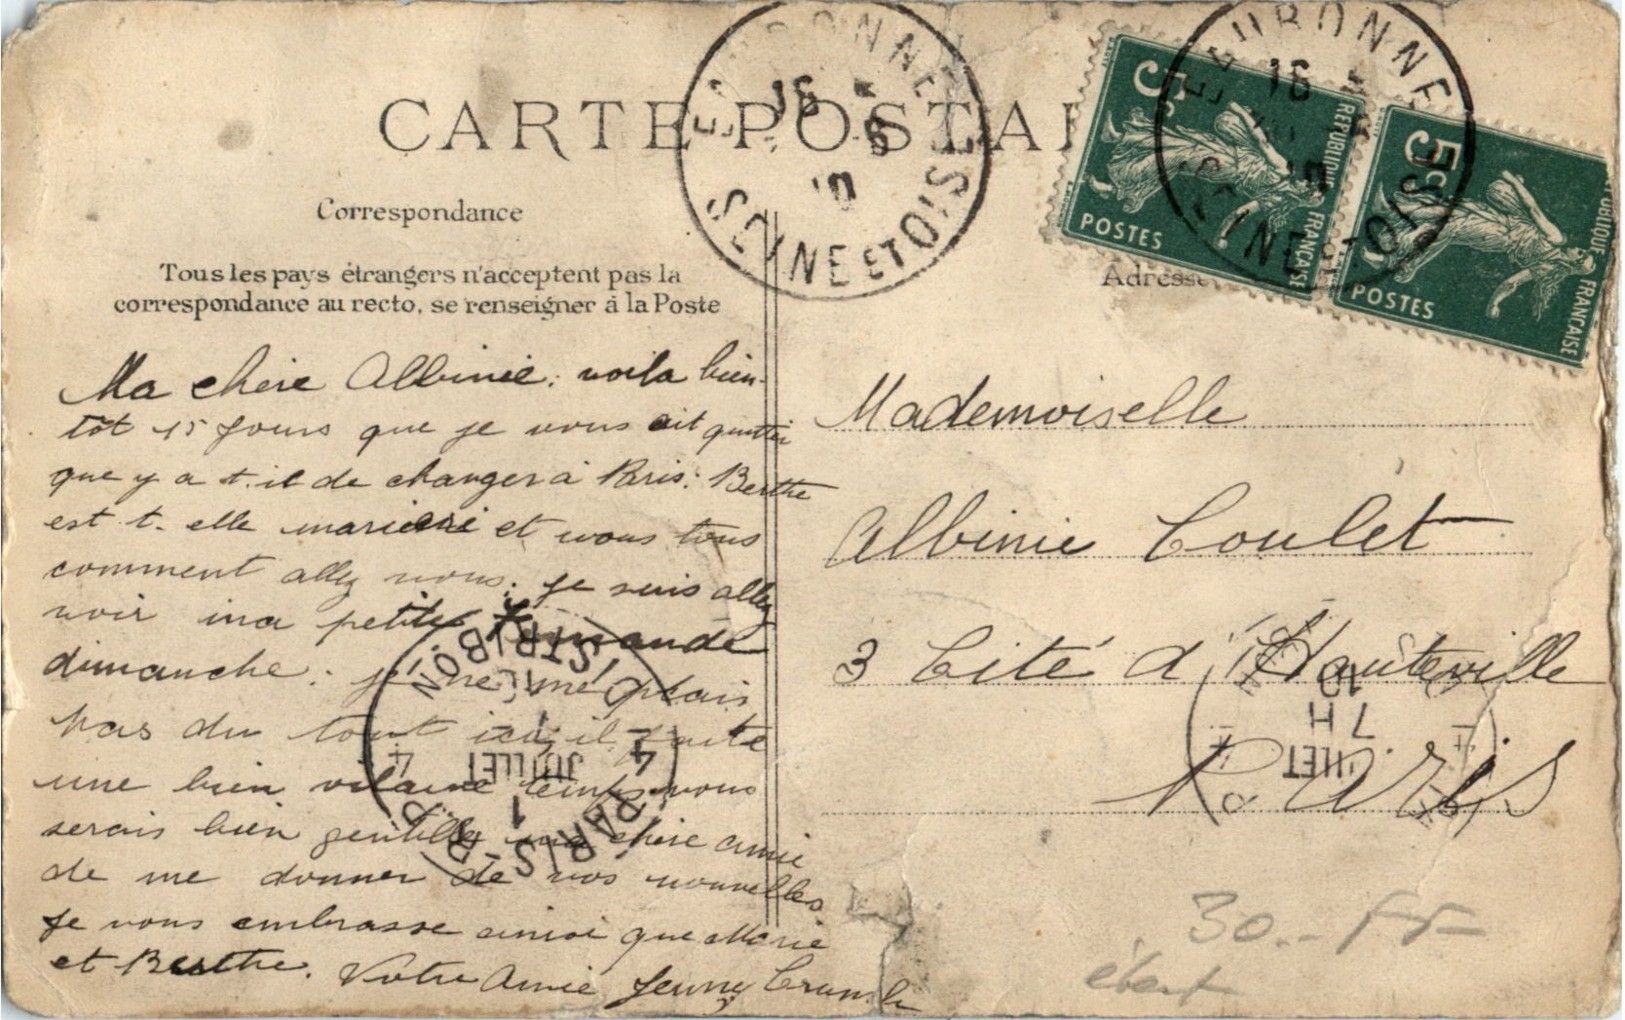 CARTE POSTAL
Correspondance
Tous les pays étrangers n'acceptent pas la
correspondance au recto, se renseigner à la Poste
Adresse
5c
POSTES
RÉPUBLIQUE FRANÇAISE
5c
POSTES
RÉPUBLIQUE FRANÇAISE
EAUBONNE
16
SEINE ET OISE
EAUBONNE
16
SEINE ET OISE
Ma chère Albinie: voila bien-
tôt 15 jours que je vous ait quitter
que y a t.il de changer à Paris: Berthe
est t. elle et vous tous
comment allez vous: je suis allez
voir ma petite
dimanche: je ne me plais
pas du tout ici, il faite
une bien vilaine temps vous
serais bien gentille ma chère amie
de me donner de vos nouvelles
Je vous embrasse ainsi que Marie
et Berthe. Votre Amie Jenny
Mademoiselle
Albinie Coulet
3 Cité d'Hauteville
Paris
PARIS
DISTRIBUTION
4 4
1
JUILLET
7H
JUILLET
30.- FF